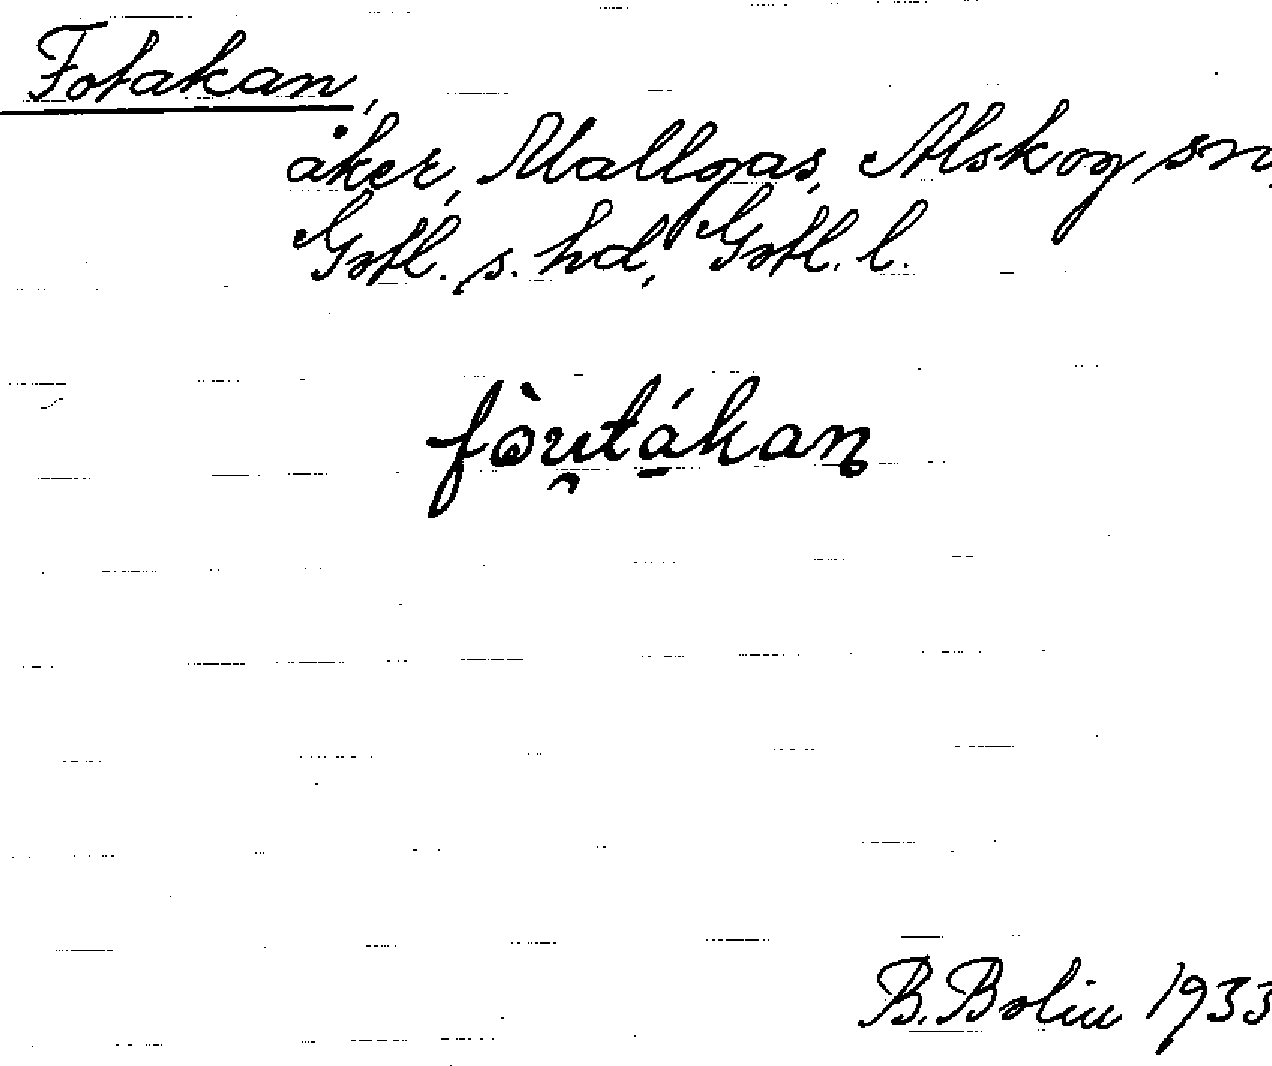 Fotakan,
åker, Mallgas, Alskog sn,
Gotl. s. hd, Gotl. l.
fòu̯tá̱kan
B. Bolin 1933